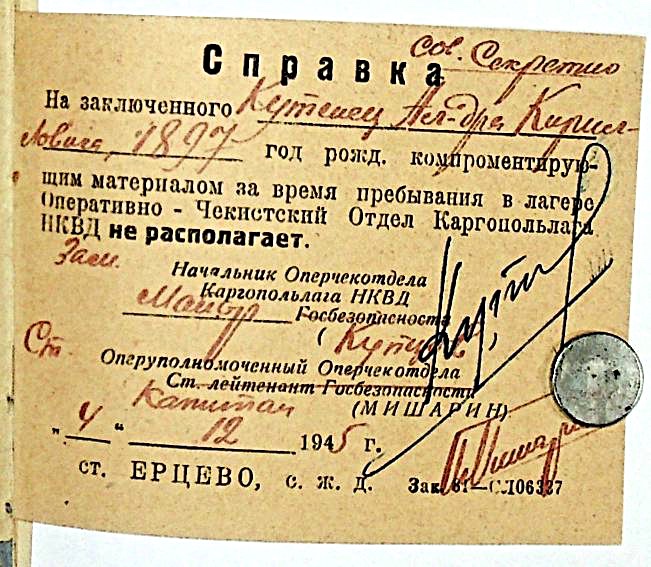 Сов. Секретно
Справка
На заключенного Кутепец Ал-дра Кирил-
ловича, 1897 год рожд. компроментирую-
щим материалом за время пребывания в лагере
Оперативно - Чекистский Отдел Каргопольлага
НКВД не располагает.
Зам. Начальник Оперчекотдела
Каргопольлага НКВД
Майор Госбезопасности
Ст. Оперуполномоченный Оперчекотдела
Ст. лейтенант Госбезопасности
Капитан (МИШАРИН)
„ 4 “ 12 1945 г.
ст. ЕРЦЕВО, с. ж. д. Зак. 81—СЛ06337